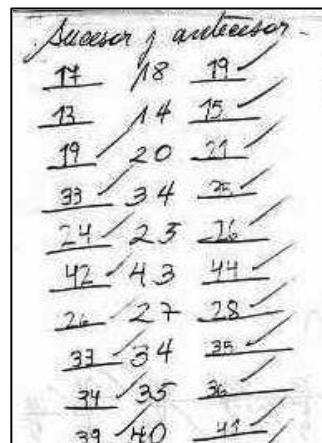 Sucesor y antecesor
17 18 19
13 14 15
19 20 21
33 34 35
24 25 26
42 43 44
26 27 28
33 34 35
34 35 36
39 40 41